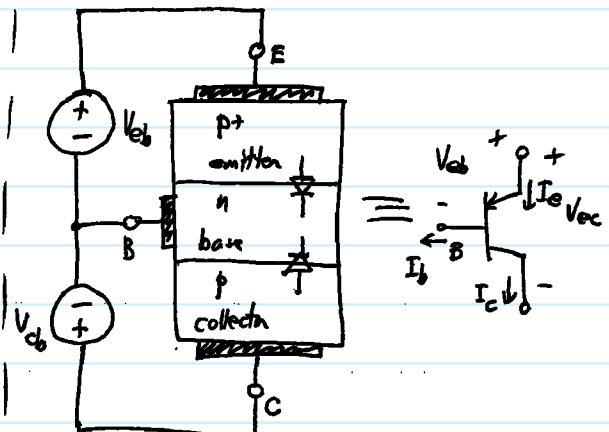 E
+
-
Veb
p+
emitter
n
base
p
collector
B
-
+
Vcb
C
≡
Veb
+
+
-
Ie
Vec
B
Ib
Ic
-